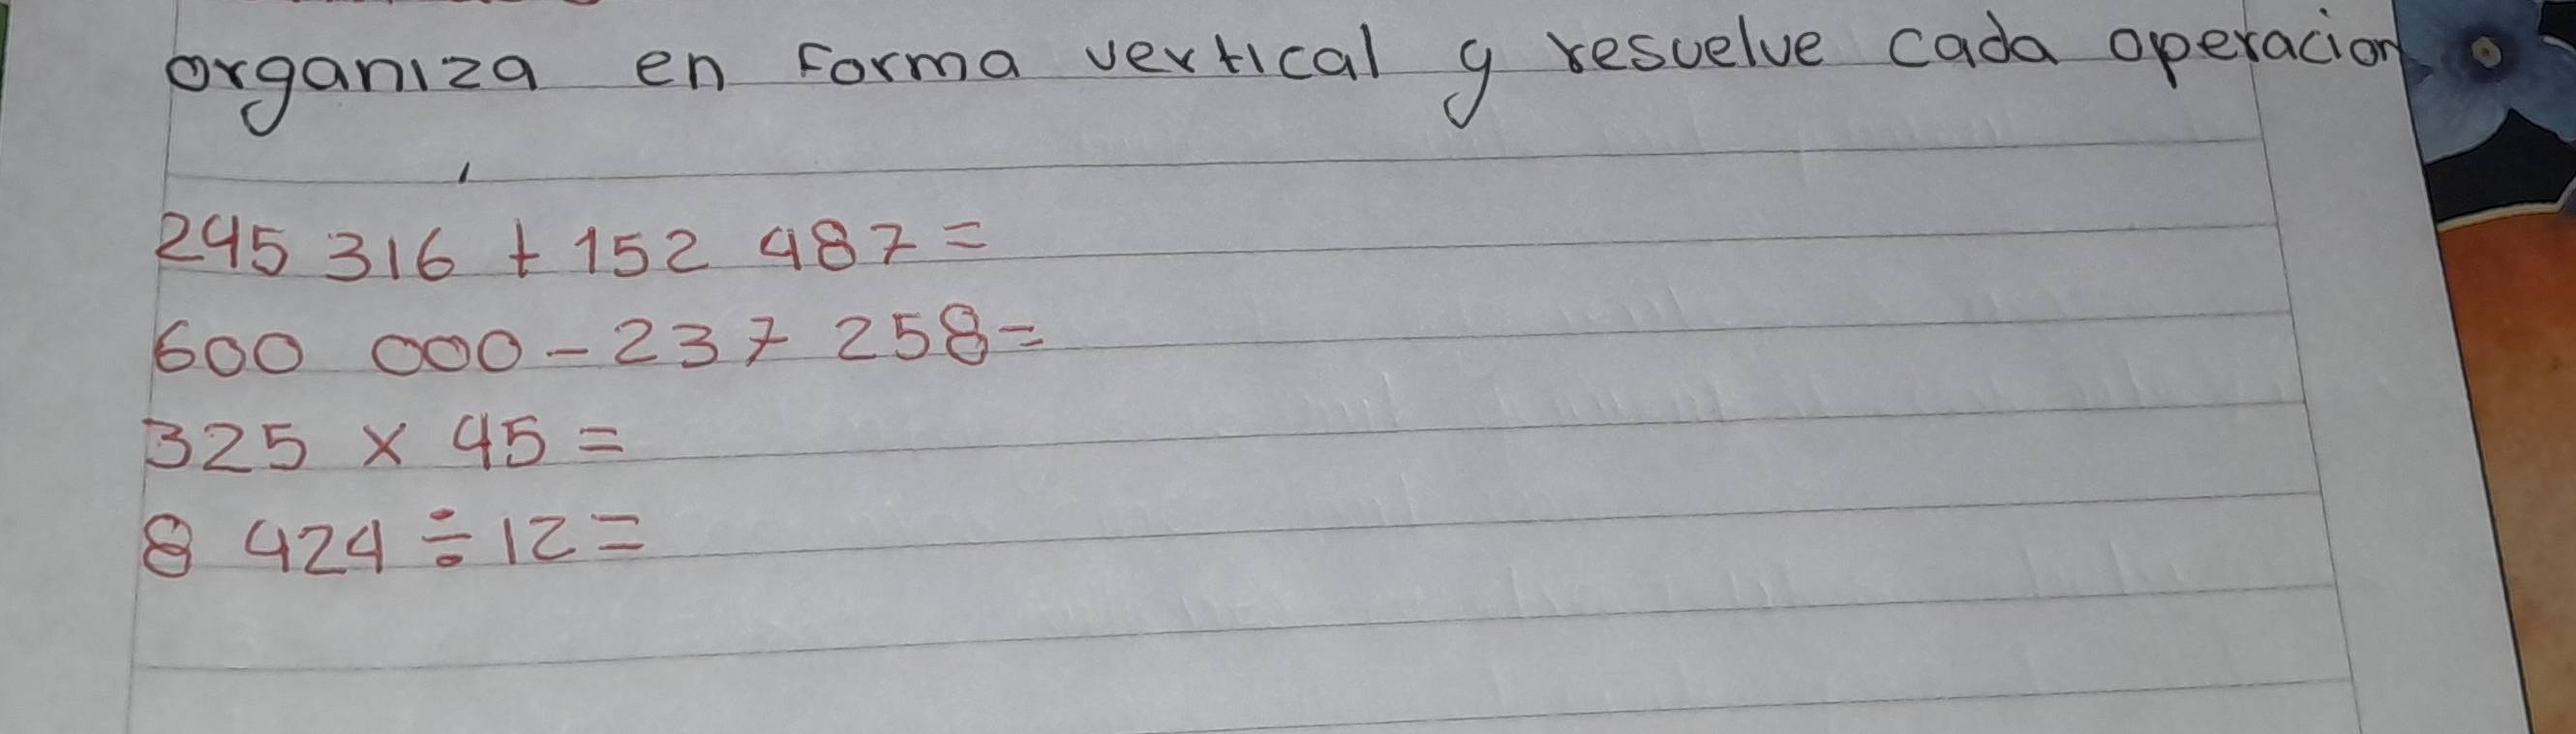 organiza en forma vertical y resuelve cada operacion
245 316 + 152 487 =
600 000 - 237 258 =
325 x 45 =
8 424 ÷ 12 =